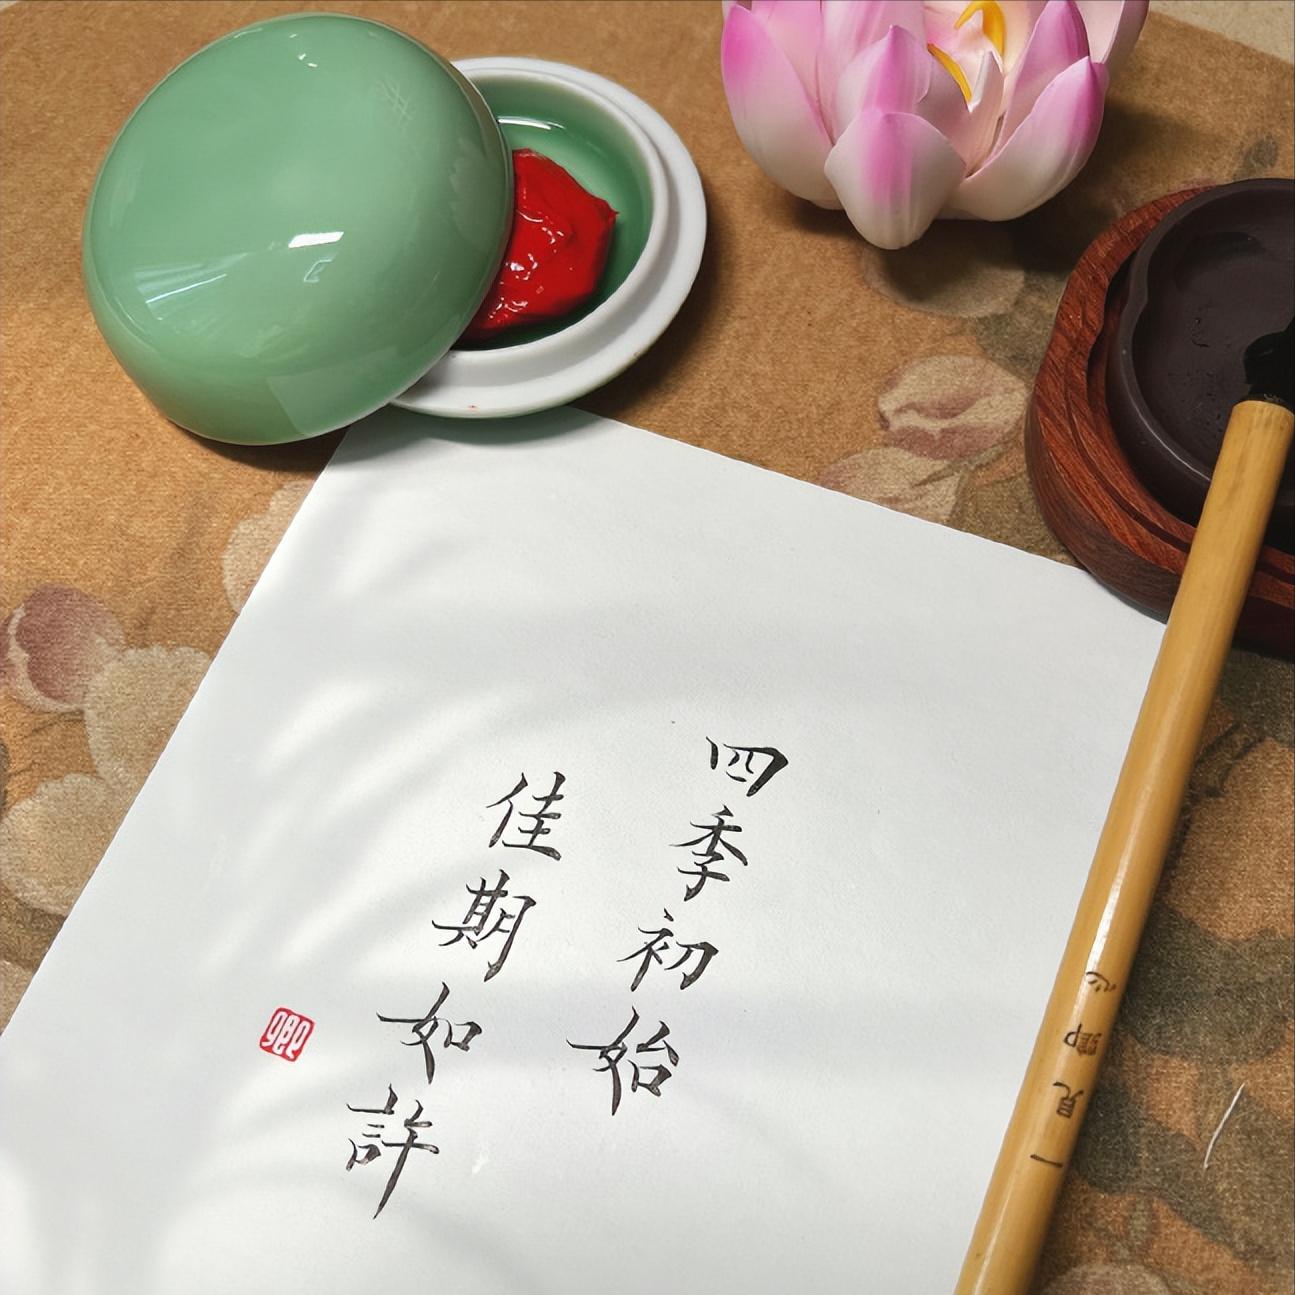 四季初始
佳期如許
卿
一見卿心